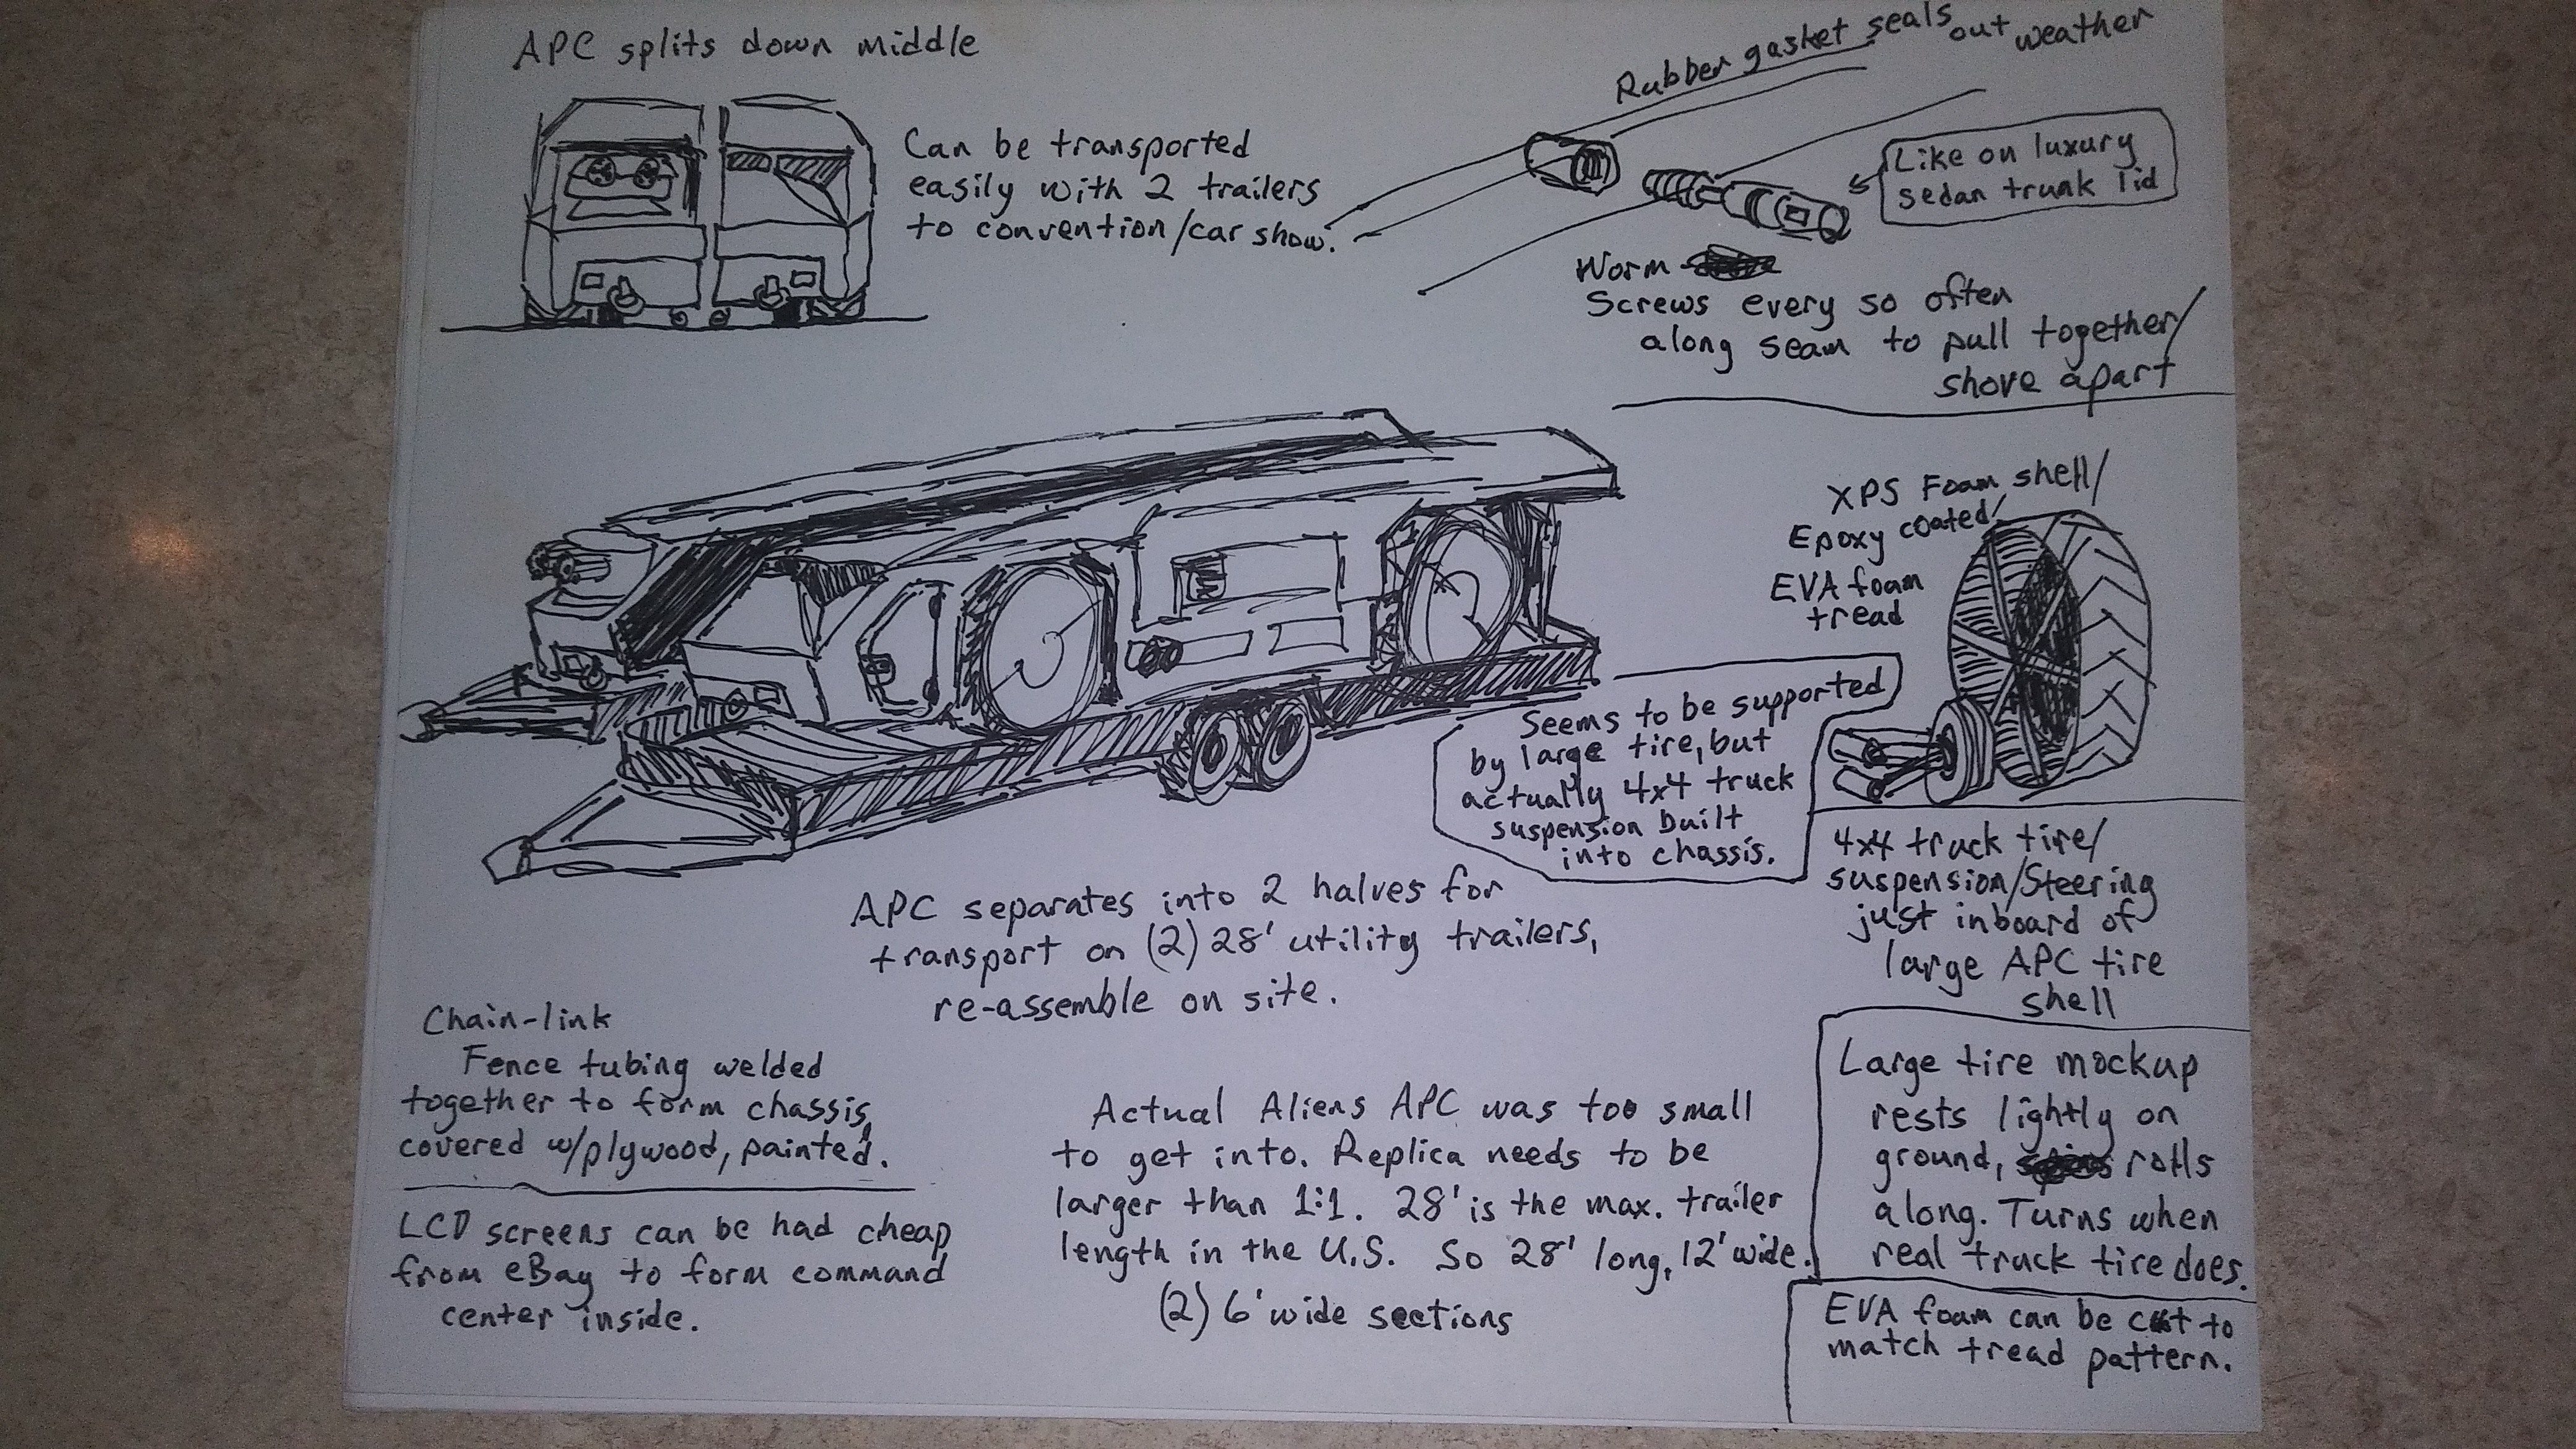 APC splits down middle
Can be transported
easily with 2 trailers
to convention/car show.
Rubber gasket seals out weather
Like on luxury
sedan trunk lid
Worm
Screws every so often
along seam to pull together/
shove apart
XPS Foam shell/
Epoxy coated/
EVA foam
tread
Seems to be supported
by large tire, but
actually 4x4 truck
suspension built
into chassis.
4x4 truck tire/
suspension/Steering
just inboard of
large APC tire
shell
APC separates into 2 halves for
transport on (2) 28' utility trailers,
re-assemble on site.
Chain-link
Fence tubing welded
together to form chassis,
covered w/plywood, painted.
LCD screens can be had cheap
from eBay to form command
center inside.
Actual Aliens APC was too small
to get into. Replica needs to be
larger than 1:1. 28' is the max. trailer
length in the U.S. So 28' long, 12' wide.
(2) 6' wide sections
Large tire mockup
rests lightly on
ground, rolls
along. Turns when
real truck tire does.
EVA foam can be cut to
match tread pattern.